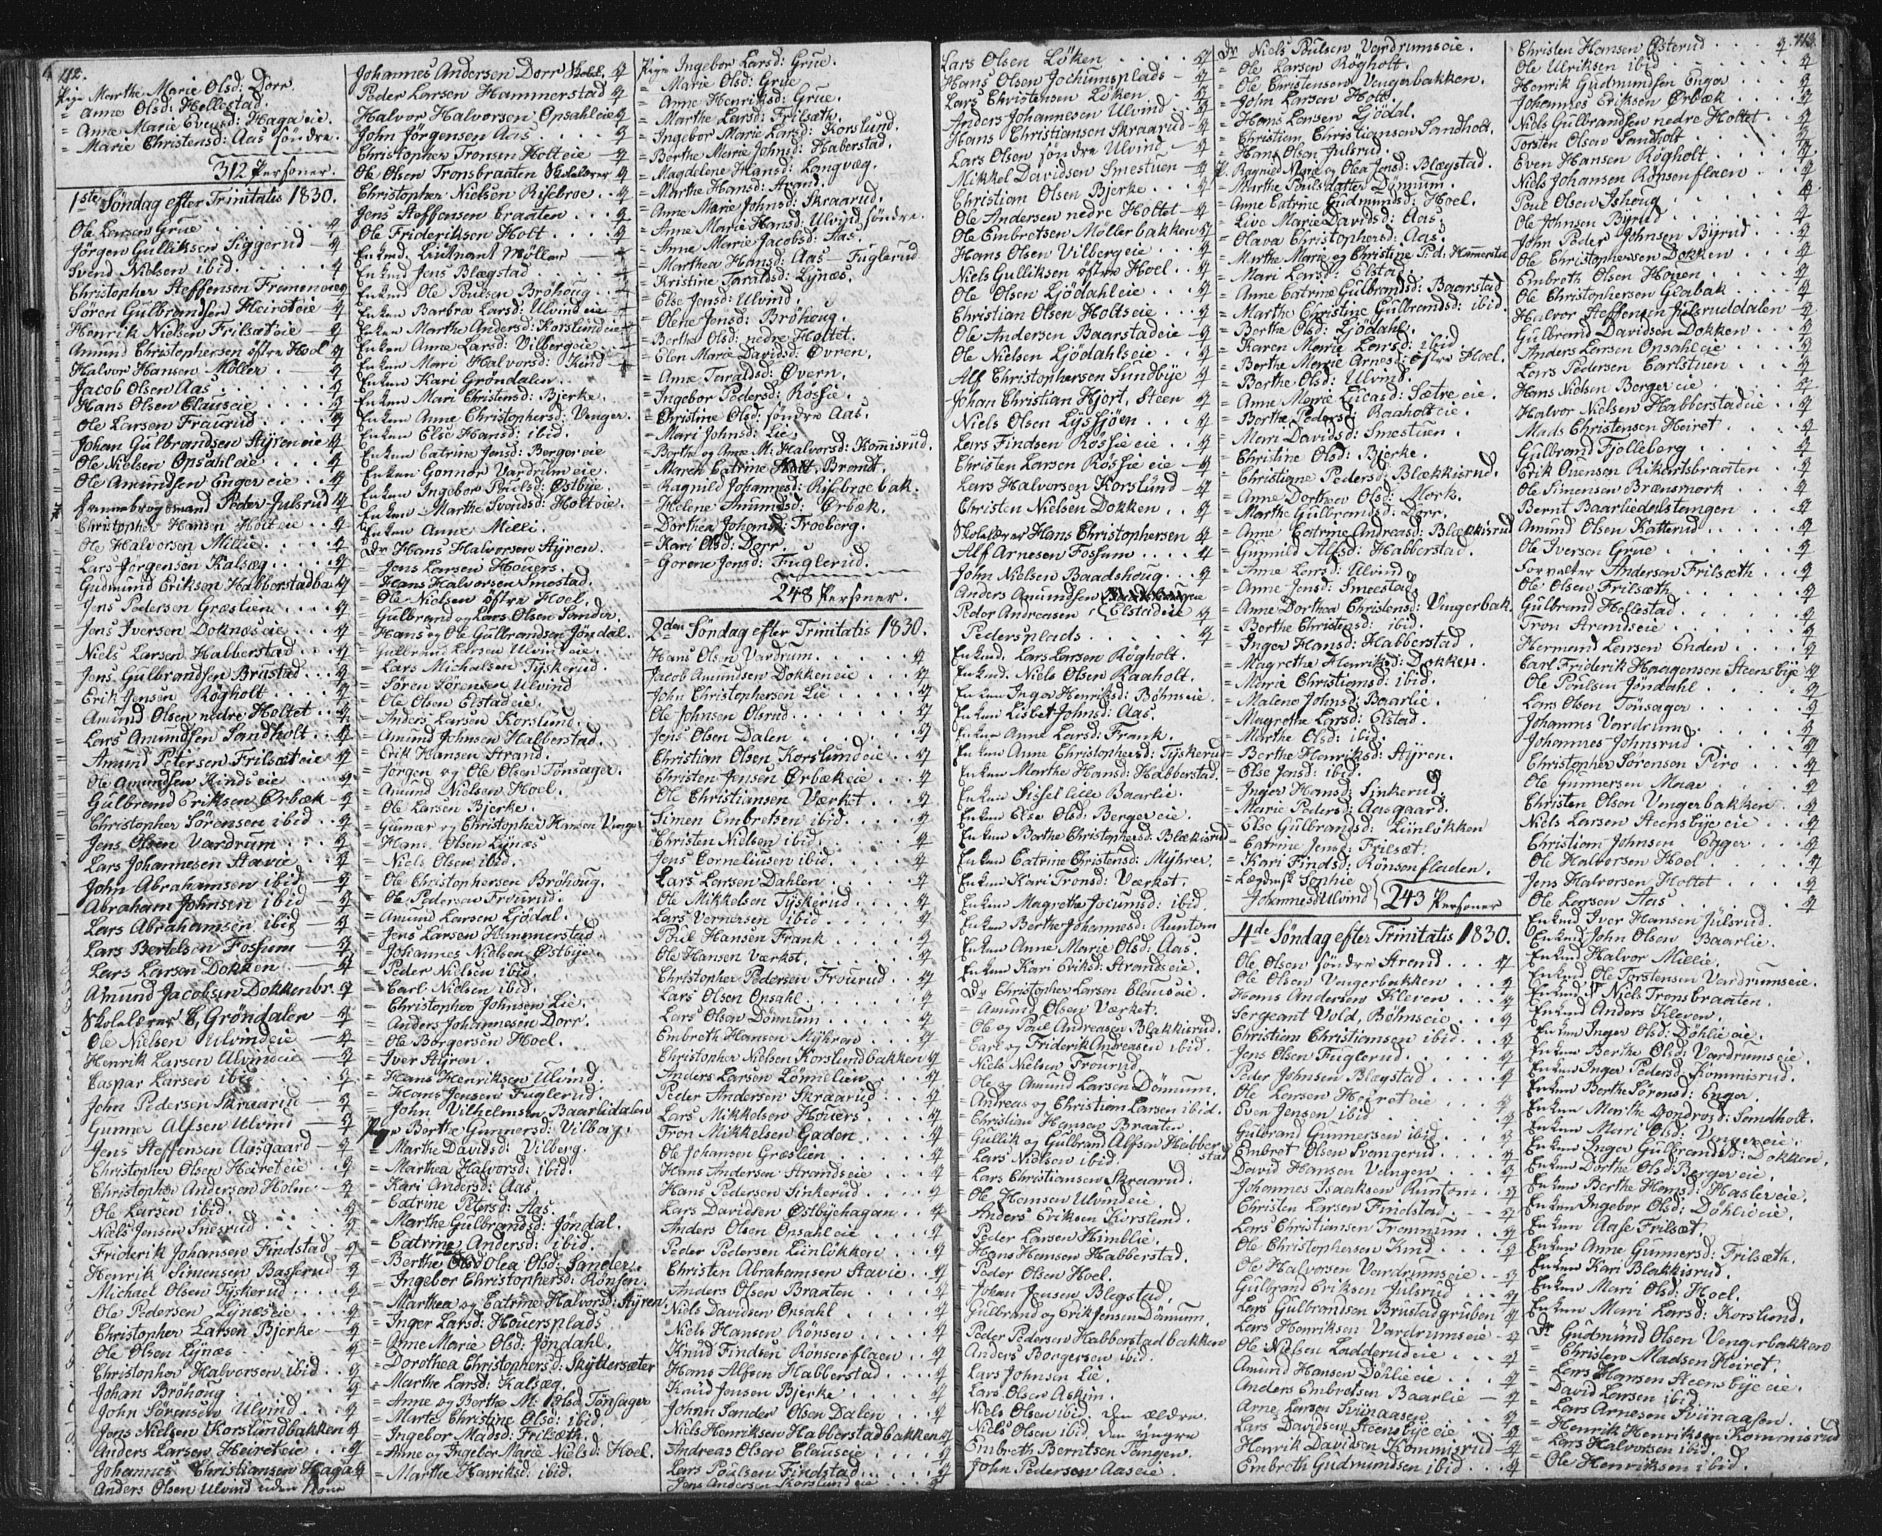 212.
Pige Marthe Marie Olsd: Dorr.
= Anne Olsd: Hollestad.
= Anne Marie Evensd: Hagaeie.
= Marie Christensd: Aas søndre.
312 Personer.
1ste Søndag efter Trinitatis 1830.
Ole Larsen Grue
Jørgen Gulliksen Siggerud
Svend Nielsen ibid.
Christopher Steffensen
Søren Gulbrandsen Heireteie
Henrik Nielsen Frilsæteie
Amund Christophersen østre Hoel
Halvor Hansen Møller
Jacob Olsen Aas
Hans Olsen Clauseie
Ole Larsen Fraurud
Johan Gulbrandsen Styreneie
Ole Nielsen Opsahleie
Ole Amundsen Engereie
Peder Julsrud
Christopher Hansen Holteie
Ole Halvorsen Millie
Lars Jørgensen Kalsæg
Gudmund Eriksen
Jens Pedersen Græslien
Jens Iversen Doknæseie
Niels Larsen Habberstad
Jens Gulbrandsen Brustad
Erik Jensen Røgholt
Amund Olsen nedre Holtet
Lars Amundsen Sandholt
Amund Petersen Frilsæteie
Ole Amundsen Kindseie
Gulbrand Eriksen Ørbæk
Christopher Sørensen ibid
Jens Olsen Vardrum
Lars Johannesen Stavie
John Abrahamsen ibid
Abraham Johnsen ibid
Lars Abrahamsen ibid
Lars Bertelsen Fossum
Lars Larsen Dokken
Amund Jacobsen Dokkenbr.
Skolelærer Grøndalen
Ole Nielsen Ulvindeie
Henrik Larsen Ulvindeie
Caspar Larsen ibid
John Pedersen Skraarud
Gunner Alfsen Ulvind
Jens Steffensen Aasgaard
Christopher Olsen Heireteie
Christopher Andersen Holm
Ole Larsen ibid.
Niels Jensen Snesrud
Friderik Johansen Findstad
Henrik Simensen Basserud
Michael Olsen Tyskerud
Ole Pedersen Lynæseie
Christopher Larsen Bjerke
Ole Olsen Lynæs
Christopher Halvorsen ibid
Johan Brøhoug
John Sørensen Ulvind
Jens Nielsen Korslundbakken
Anders Larsen Heireteie
Johannes Christiansen Haga
Anders Olsen Ulvind uden Kone
Johannes Andersen Dorr
Peder Larsen Hammerstad
Halvor Halvorsen Opsahleie
John Jørgensen Aas
Christopher Tronsen Holteie
Ole Olsen Tronsbraaten Skolelærer
Christopher Nielsen Risebroe
Jens Steffensen braaten
Ole Frideriksen Holt
Enkmd. Lieutnant Møller
Enkmd Jens Blægstad
Enkmd Ole Poulsen Brøhoug
Enken Barbra Larsd: Ulvindeie
Enken Marthe Andersd: Korslundeie
Enken Anne Larsd: Vilbergeie
Enken Mari Halvorsd: Kind
Enken Kari Grøndalen
Enken Mari Christensd: Bjerke.
Enken Anne Christophersd: Venger.
Enken Else Hansd: ibid.
Enken Catrine Jensd: Bergereie
Enken Gonnor Vardrumeie.
Enken Ingebor Poulsd: Østbye.
Enken Marthe Svendsd: Holteie.
Enken Anne Milli.
Dr Hans Halvorsen Styren.
= Jens Larsen Houers.
= Hans Halvorsen Smestad.
= Ole Nielsen østre Hoel.
= Gulbrand og Lars Olsen Sander
= Hans og Ole Gulbrandsen Jøndal.
= Gulbrand Larsen Ulvindeie.
= Lars Michelsen Tyskerud.
= Søren Sørensen Ulvind
= Ole Olsen Elstadeie.
= Anders Larsen Korslund.
= Amund Johnsen Halberstad.
= Erik Hansen Strand.
= Jørgen og Ole Olsen Tønsager.
= Amund Nielsen Hoel.
= Ole Larsen Bjerke.
= Gunner og Christopher Hansen Venger
= Hans Olsen Lynæs
= Niels Olsen ibid.
= Ole Christophersen Brøhoug.
= Ole Pedersen Frourud.
= Amund Larsen Ljødal.
= Jens Larsen Hammerstad.
= Johannes Nielsen Østbye.
= Peder Nielsen ibid.
= Carl Nielsen ibid.
= Christopher Johnsen Lie.
= Anders Johannesen Dorr.
= Ole Borgersen Hoel.
= Iver Styren.
= Hans Henriksen Ulvind.
= Hans Jensen Fuglerud.
= John Vilhelmsen Baarlidalen
Pige Berthe Gunnersd: Vilberg.
= Marthe Davidsd: Vilberg.
= Marthea Halvorsd: ibid.
= Kari Andersd: Aas.
= Catrine Petersd: Aas.
= Marthe Gulbrandsd: Jøndal.
= Catrine Andersd: ibid.
= Berthe Olsd Olea Olsd: Sander.
= Ingebor Christophersd: Rønsen.
= Marthea og Catrine Halvorsd: Styren.
= Inger Larsd: Houersplads.
= Anne Marie Olsd: Jøndahl.
= Dorothea Christophersd: Skyttersæter
= Marthe Larsd: Kalsæg.
= Anne og Berthe M: Olsd Tønsager
= Marte Christine Olsd: ibid.
= Ingebor Madsd: Frilsæth.
= Anne og Ingebor Marie Nielsd: Hoel.
= Marthe Henriksd: ibid.
Pige Ingebor Larsd: Grue.
= Marie Olsd: Grue.
= Anne Henriksd: Grue.
= Marthe Larsd: Frilsæth.
= Ingebor Marie Larsd: Korslund.
= Berthe Marie Johnsd: Haberstad.
= Magdelene Hansd: Langvæg.
= Marthe Hansd: Strand.
= Anne Marie Johnsd: Skraarud.
= Anne Marie Hansd: Ulvind søndre.
= Anne Marie Jacobsd: Aas.
= Marthea Hansd: Aas Fuglerud
= Kristine Taraldsd: Lynæs.
= Else Jensd: Ulvind.
= Olene Jensd: Brøhoug.
= Berthe Olsd: nedre Holtet.
= Elen Marie Davidsd: Øvren.
= Anne Taraldsd: Øvern.
= Ingebor Pedersd: Røsfie.
= Christine Olsd: søndre Aas.
= Mari Johnsd: Lie.
= Berthe og Anne M: Halvorsd: Komisrud.
= Maren Catrine Brandt.
= Ragnild Johannesd: Risebroebak.
= Helene Amundsd: Ørbæk.
= Dorthea Johansd: Troeberg.
= Kari Olsd: Dorr.
= Gorene Jensd: Fuglerud.
248 Personer.
2den Søndag efter Trinitatis 1830.
Hans Olsen Vardrum
Jacob Amundsen Dokkeneie
John Christophersen Lie
Ole Johnsen Olsrud
Jens Olsen Dalen
Christian Olsen Korslundeie
Christen Jensen Ørbækeie
Ole Christiansen Værket
Simen Embretsen ibid.
Christen Nielsen ibid.
Jens Corneliusen ibid.
Lars Larsen Dahlen
Ole Mikkelsen Tyskerud
Lars Vernersen ibid.
Poul Hansen Frank
Ole Hansen Værket.
Christopher Pedersen Frourud
Lars Olsen Opsahl
Lars Olsen Dønnum
Embreth Hansen Myhrer
Christopher Nielsen Korslundbakken
Anders Larsen Lømelien
Peder Andersen Skraarud
Lars Mikkelsen Houers
Tron Mikkelsen Gaden
Ole Johansen Græslien
Hans Andersen Strandseie
Hans Pedersen Sinkerud
Lars Davidsen Østbyehagan
Anders Olsen Onsahleie
Peder Pedersen Liinløkken
Christen Abrahamsen Stavie
Anders Olsen Braaten
Niels Davidsen Onsahl
Niels Hansen Rønsen
Knud Findsen Rønsenflaen
Hans Alfsen Habberstad
Knud Jensen Bjerke
Johan Sander Olsen Dalen
Niels Henriksen Habberstadbakken
Andreas Olsen Clauseie
Lars Poulsen Findstad
Jens Andersen Korslundeie
213.
Lars Olsen Løken
Hans Olsen Jochumsplads
Lars Christensen Løken
Anders Johannesen Ulvind
Hans Christiansen Skraarud
Lars Olsen søndre Ulvind
Mikkel Davidsen Smestuen
Christian Olsen Bjerke
Ole Andersen nedre Holtet
Ole Embretsen Møllerbakken
Hans Olsen Vilbergeie
Niels Gulliksen østre Hoel
Ole Olsen Ljødahleie
Christian Olsen Holtseie
Ole Andersen Baarstadeie
Ole Nielsen Gjødahlseie
Alf Christophersen Sundbye
Johan Christian Hjort, Steen
Niels Olsen Lyssjøen
Lars Findsen Røsfieeie
Christen Larsen Røsfieeie
Lars Halvorsen Korslund
Christen Nielsen Dokken
Skolelærer Hans Christophersen
Alf Arnesen Fossum
John Nielsen Baadshoug
Anders Amundsen
Peder Andreasen Elstadeie
Pedersplads
Enkmd. Lars Larsen Røgholt.
Enkmd: Niels Olsen Raaholt.
Enken Inger Henriksd: Bøhnseie.
Enken Lisbet Johnsd: Aas.
Enken Anne Larsd: Frank.
Enken Anne Christophersd: Tyskerud
Enken Marthe Hansd: Habberstad.
Enken Sissel lille Baarlie.
Enken Else Olsd: Bergereie.
Enken Berthe Christophersd: Blækisrud
Enken Catrine Christensd: Myhrer.
Enken Kari Tronsd: Værket.
Enken Magrethe Jocumsd: ibid.
Enken Berthe Johannesd: Runtom
Enken Anne Marie Olsd: Aas.
Enken Kari Eriksd: Strandseie.
Dr Christopher Larsen Clauseie.
= Amund Olsen Værket.
= Ole og Poul Andreasen Blakkisrud.
= Carl og Friderik Andreasen ibid.
= Niels Nielsen Trourud.
= Ole og Amund Larsen Dønnum.
= Andreas og Christian Larsen ibid.
= Christian Hansen Braaten
= Gullik og Gulbrand Alfsen Habberstad
= Lars Nielsen ibid.
= Lars Christiansen Skraarud.
= Ole Hansen Ulvindeie.
= Anders Eriksen Korslund.
= Peder Larsen Himblie.
= Hans Hansen Habberstad.
= Peder Olsen Hoel.
= Johan Jensen Blegstad.
= Gulbrand og Erik Jensen Dønnum.
Peder Pedersen Habberstadbakken
Anders Borgersen ibid.
Lars Johnsen Lie.
Lars Olsen Askim.
Niels Olsen ibid. den ældre.
Niels Olsen ibid. den yngre
Embreth Berntsen Tangen.
John Pedersen Aaseie.
Dr Niels Poulsen Vardrumseie.
= Ole Larsen Røgholt.
= Ole Christensen Vengerbakken.
= John Larsen Holt.
= Hans Larsen Ljødal.
= Christian Christiansen Sandholt.
= Hans Olsen Julsrud.
P. Ragnild Marie og Olea Jensd: Blægstad.
= Marthe Poulsdatter Dønnum.
= Anne Catrine Gudmundsd: Hoel.
= Live Marie Davidsd: Aas.
= Olava Christophersd: Aas.
= Marthe Marie og Christine Pd: Hammerstad
= Mari Larsd: Elstad
= Anne Catrine Gulbrandsd: Baarstad
= Marthe Christine Gulbrandsd: ibid.
= Berthe Olsd: Gjødahl.
= Karen Marie Larsd: ibid.
= Berthe Marie Arnesd: østre Hoel.
= Berthe Olsd: Ulvind.
= Anne Marie Lucasd: Sætreeie.
= Berthe Pedersd: Raaholteie.
= Mari Davidsd: Smestuen.
= Christine Olsd: Bjerke.
= Christiane Pedersd: Blækkisrud.
= Anne Dorthea Olsd: Mork.
= Marthe Gulbrandsd: Dorr.
= Anne Catrine Andreasd: Blækkisrud
= Gunnild Alfsd: Habberstad.
= Anne Larsd: Ulvind
= Anne Jensd: Smestad
= Anne Dorthea Christensd: Vengerbak.
= Berthe Christensd: ibid.
= Inger Hansd: Habberstad.
= Magrethe Henriksd: Dokken.
= Marie Christiansd: ibid.
= Malene Johnsd: Baarlie.
= Magrethe Larsd: Elstad.
= Marthe Olsd: ibid.
= Berthe Henriksd: Styren.
= Else Jensd: ibid.
= Inger Hansd: Sinkerud.
= Marie Pedersd: Aasgaard.
= Else Gulbrandsd: Liinløkken
= Catrine Jensd: Frilsæt.
= Kari Findsd: Rønsenfladen.
= Sophie
Johannesd Ulvind 243 Personer
4de Søndag efter Trinitatis 1830.
Ole Olsen søndre Strand
Ole Olsen Vengerbakken
Hans Andersen Kleven
Sergeant Vold, Bøhnseie
Christian Christiansen ibid.
Jens Olsen Fuglerud
Peder Johnsen Blegstad
Ole Larsen Heireteie
Even Jensen ibid
Gulbrand Gunnersen ibid
Embret Olsen Svengerud
David Hansen Vengen
Johannes Isaaksen Runtom
Christen Larsen Findstad
Lars Christiansen Trommum
Ole Christophersen Kind
Ole Halvorsen Vardrumseie
Gulbrand Eriksen Julsrud
Lars Gulbrandsen Brustadgruben
Lars Henriksen Vardrumseie
Ole Nielsen Ladderudeie
Amund Hansen Døhlieeie
Anders Embretsen Baarlie
Arne Larsen Sviinaasen
Lars Davidsen Steensbyeeie
Henrik Davidsen Kommisrud
Embreth Gudmundsen ibid
Christen Hansen Østerud
Ole Ulriksen ibid
Henrik Gudmundsen Enger
Johannes Eriksen Ørbæk
Niels Gulbrandsen nedre Holtet
Torsten Olsen Sandholt
Even Hansen Røgholt
Niels Johansen Rønsenflaen
Poul Olsen Ishoug
Ole Johnsen Byrud
John Peder Johnsen Byrud
Ole Christophersen Dokken
Embreth Olsen Hoiren
Ole Christophersen Glabak
Halvor Steffensen Julsruddalen
Gulbrand Davidsen Dokken
Anders Larsen Opsahleie
Lars Pedersen Carlstuen
Hans Nielsen Bergereie
Halvor Nielsen Habberstadeie
Mads Christensen Heiret
Gulbrand Fjolleberg
Erik Ovensen Rikertsbraaten
Ole Simensen Brænsmork
Bernt Baarliedenstangen
Amund Olsen Katterud
Ole Iversen Grue
Forvalter Andersen Frilsæth
Ole Olsen Frilsæth
Gulbrand Hollestad
Tron Strandseie
Hermand Larsen Enden
Carl Friderik Haagensen Steensbye
Ole Poulsen Jøndahl
Lars Olsen Tønsager
Johannes Vardrum
Johannes Johnsrud
Christopher Sørensen Piro
Ole Gunnersen Moae
Christen Olsen Vengerbakken
Niels Larsen Steensbyeeie
Christian Johnsen Egger
Ole Halvorsen Hoel
Jens Halvorsen Holtet
Ole Larsen Aas
Enkmd Iver Hansen Julsrud.
Enkmd John Olsen Baarlie.
Enkmd Halvor Millie.
Enkmd Ole Torstensen Vardrumseie.
Enkmd Niels Tronsbraaten.
Enkmd Anders Kleven.
Enken Inger Olsd: Døhlieeie.
Enken Berthe Olsd: Vardrumseie.
Enken Inger Pedersd: Kommisrud.
Enken Berthe Sørensd: Enger.
Enken Marthe Gondrosd: Sandholt.
Enken Mari Olsd: Vengereie.
Enken Inger Gulbrandsd: Dokken.
Enken Dorthe Olsd: Bergereie.
Enken Berthe Hansd: Hasleveie.
Enken Ingebor Olsd: Døhlieeie.
Enken Aase Frilsæt.
Enken Anne Gunnersd: Frilsæth.
Enken Kari Blakkisrud.
Enken Mari Olsd: Hoel.
Enken Mari Larsd: Korslund.
Dr Gudmund Olsen Vengerbakken
= Christen Madsen Heiret.
= Lars Hansen Steensbyeeie.
= David Larsen ibid.
= Lars Arnesen Sviinaasen.
= Henrik Henriksen Kommisrud
= Lars Halvorsen ibid.
= Ole Henriksen ibid.